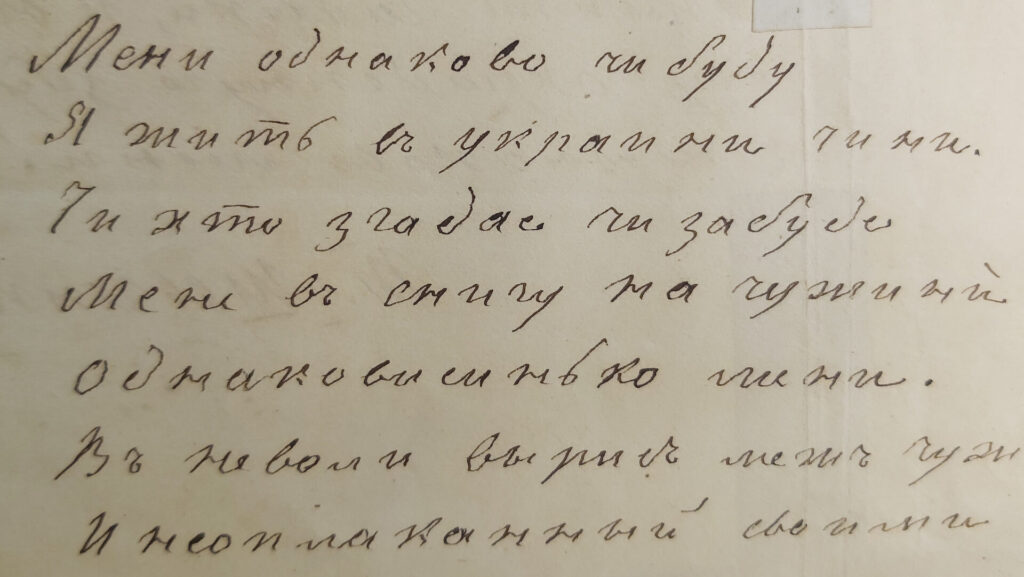 Мени однаково чи буду
Я жить въ украини чи ни.
Чи хто згадае чи забуде
Мене въ снигу на чужиний
Однаковисинько мени.
Въ неволи вырисъ межъ чуж
И неоплаканный своими